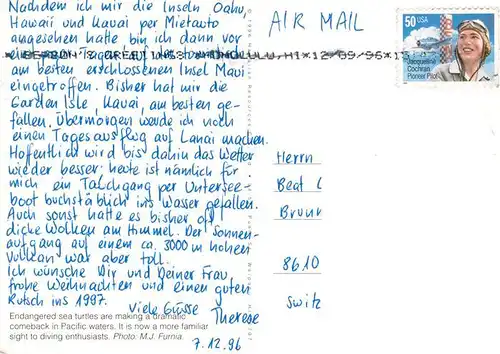 Nachdem ich mir die Inseln Oahu,
Hawaii und Kauai per Mietauto
angesehen hatte bin ich dann vor
am besten erschlossenen Insel Maui
eingetroffen. Bisher hat mir die
Garden Isle, Kauai, am besten ge-
fallen. Übermorgen werde ich noch
einen Tagesausflug auf Lanai machen.
Hoffentlich wird bis dahin das Wetter
wieder besser; heute ist nämlich für
mich ein Tauchgang per Untersee-
boot buchstäblich ins Wasser gefallen.
Auch sonst hatte es bisher oft
dicke Wolken am Himmel. Der Sonnen-
aufgang auf einem ca. 3000 m hohen
Vulkan war aber toll.
Ich wünsche Dir und Deiner Frau,
frohe Weihnachten und einen guten
Rutsch ins 1997.
Viele Grüsse
Therese
7.12.96
Endangered sea turtles are making a dramatic
comeback in Pacific waters. It is now a more familiar
sight to diving enthusiasts. Photo: M.J. Furnia
AIR MAIL
HONOLULU, HI 12/09/96
50 USA
Jacqueline
Cochran
Pioneer Pilot
Herrn
Beat
Brunn
8610
Switz